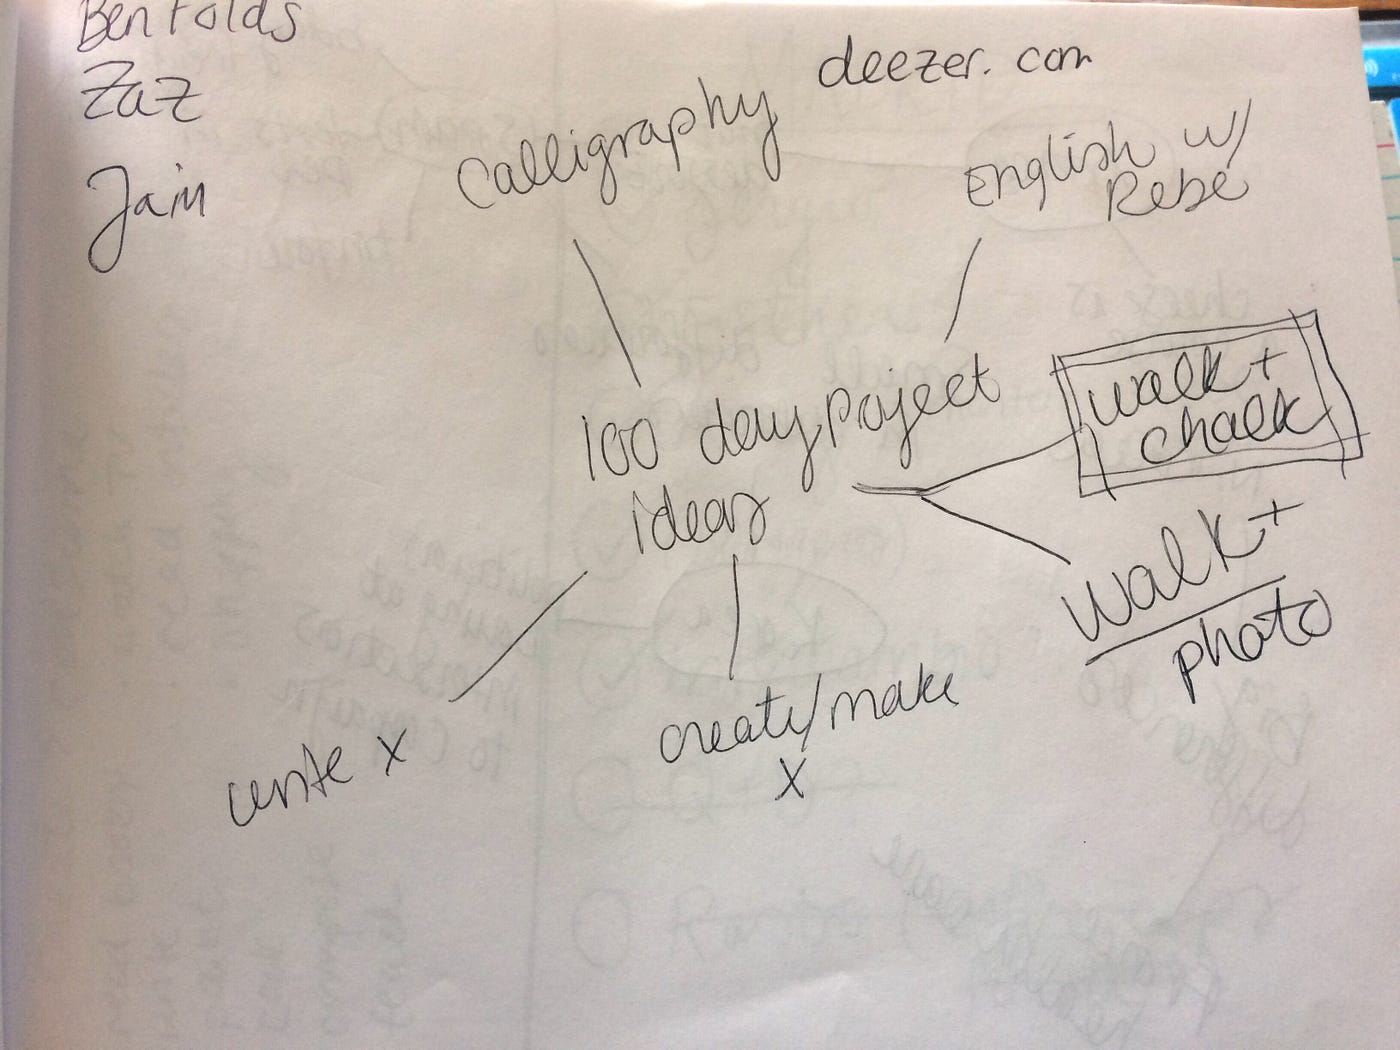 Ben Folds
Zaz
Jain
deezer.com
Calligraphy
English w/
Rebe
100 day project
ideas
walk +
chalk
walk +
photo
write x
create/make
x